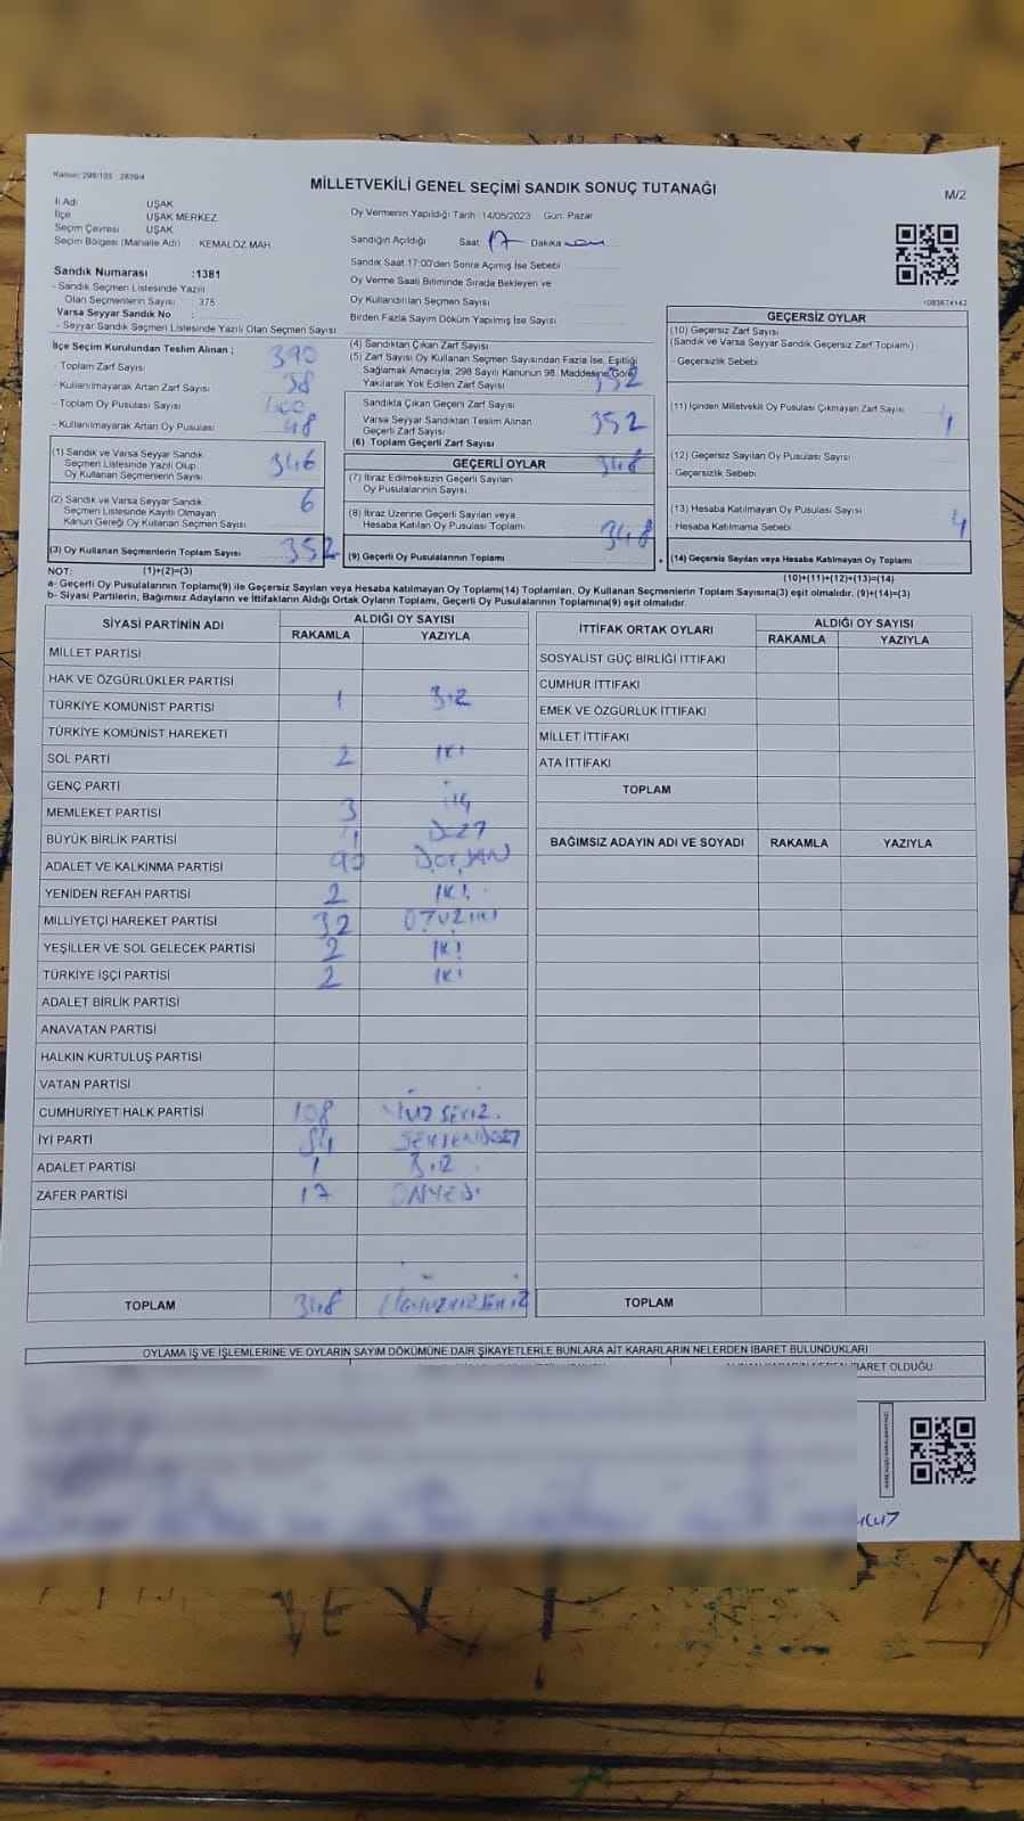 MİLLETVEKİLİ GENEL SEÇİMİ SANDIK SONUÇ TUTANAĞI
M/2
İl Adı UŞAK
İlçe UŞAK MERKEZ
Seçim Çevresi UŞAK
Seçim Bölgesi (Mahalle Adı) KEMALÖZ MAH.
Oy Vermenin Yapıldığı Tarih 14/05/2023 Gün: Pazar
Sandığın Açıldığı Saat 17 Dakika
Sandık Saat 17:00'den Sonra Açılmış İse Sebebi
Oy Verme Saati Bitiminde Sırada Bekleyen ve
Oy Kullandırılan Seçmen Sayısı
Birden Fazla Sayım Döküm Yapılmış İse Sayısı
Sandık Numarası :1381
- Sandık Seçmen Listesinde Yazılı
Olan Seçmenlerin Sayısı : 375
Varsa Seyyar Sandık No :
- Seyyar Sandık Seçmen Listesinde Yazılı Olan Seçmen Sayısı
İlçe Seçim Kurulundan Teslim Alınan ;
- Toplam Zarf Sayısı 390
- Kullanılmayarak Artan Zarf Sayısı 38
- Toplam Oy Pusulası Sayısı 400
- Kullanılmayarak Artan Oy Pusulası 48
(1) Sandık ve Varsa Seyyar Sandık
Seçmen Listesinde Yazılı Olup
Oy Kullanan Seçmenlerin Sayısı 346
(2) Sandık ve Varsa Seyyar Sandık
Seçmen Listesinde Kayıtlı Olmayan
Kanun Gereği Oy Kullanan Seçmen Sayısı 6
(3) Oy Kullanan Seçmenlerin Toplam Sayısı 352
(1)+(2)=(3)
(4) Sandıktan Çıkan Zarf Sayısı
(5) Zarf Sayısı Oy Kullanan Seçmen Sayısından Fazla İse, Eşitliği
Sağlamak Amacıyla, 298 Sayılı Kanunun 98. Maddesine Göre
Yakılarak Yok Edilen Zarf Sayısı 352
Sandıkta Çıkan Geçerli Zarf Sayısı
Varsa Seyyar Sandıktan Teslim Alınan
Geçerli Zarf Sayısı 352
(6) Toplam Geçerli Zarf Sayısı
GEÇERLİ OYLAR 348
(7) İtiraz Edilmeksizin Geçerli Sayılan
Oy Pusulalarının Sayısı
(8) İtiraz Üzerine Geçerli Sayılan veya
Hesaba Katılan Oy Pusulası Toplamı 348
(9) Geçerli Oy Pusulalarının Toplamı
GEÇERSİZ OYLAR
(10) Geçersiz Zarf Sayısı
(Sandık ve Varsa Seyyar Sandık Geçersiz Zarf Toplamı)
- Geçersizlik Sebebi
(11) İçinden Milletvekili Oy Pusulası Çıkmayan Zarf Sayısı
(12) Geçersiz Sayılan Oy Pusulası Sayısı
- Geçersizlik Sebebi
(13) Hesaba Katılmayan Oy Pusulası Sayısı
- Hesaba Katılmama Sebebi 4
(14) Geçersiz Sayılan veya Hesaba Katılmayan Oy Toplamı
(10)+(11)+(12)+(13)=(14)
NOT:
a- Geçerli Oy Pusulalarının Toplamı(9) ile Geçersiz Sayılan veya Hesaba katılmayan Oy Toplamı(14) Toplamları, Oy Kullanan Seçmenlerin Toplam Sayısına(3) eşit olmalıdır. (9)+(14)=(3)
b- Siyasi Partilerin, Bağımsız Adayların ve İttifakların Aldığı Ortak Oyların Toplamı, Geçerli Oy Pusulalarının Toplamına(9) eşit olmalıdır.
SİYASİ PARTİNİN ADI ALDIĞI OY SAYISI
RAKAMLA YAZIYLA
MİLLET PARTİSİ
HAK VE ÖZGÜRLÜKLER PARTİSİ
TÜRKİYE KOMÜNİST PARTİSİ 1
TÜRKİYE KOMÜNİST HAREKETİ
SOL PARTİ 2 İKİ
GENÇ PARTİ
MEMLEKET PARTİSİ 3
BÜYÜK BİRLİK PARTİSİ
ADALET VE KALKINMA PARTİSİ 90 DOKSAN
YENİDEN REFAH PARTİSİ 2 İKİ
MİLLİYETÇİ HAREKET PARTİSİ 32 OTUZİKİ
YEŞİLLER VE SOL GELECEK PARTİSİ 2 İKİ
TÜRKİYE İŞÇİ PARTİSİ 2 İKİ
ADALET BİRLİK PARTİSİ
ANAVATAN PARTİSİ
HALKIN KURTULUŞ PARTİSİ
VATAN PARTİSİ
CUMHURİYET HALK PARTİSİ 108 YÜZ SEKİZ
İYİ PARTİ 84
ADALET PARTİSİ 1
ZAFER PARTİSİ 17 ONYEDİ
TOPLAM 348
İTTİFAK ORTAK OYLARI ALDIĞI OY SAYISI
RAKAMLA YAZIYLA
SOSYALİST GÜÇ BİRLİĞİ İTTİFAKI
CUMHUR İTTİFAKI
EMEK VE ÖZGÜRLÜK İTTİFAKI
MİLLET İTTİFAKI
ATA İTTİFAKI
TOPLAM
BAĞIMSIZ ADAYIN ADI VE SOYADI RAKAMLA YAZIYLA
TOPLAM
OYLAMA İŞ VE İŞLEMLERİNE VE OYLARIN SAYIM DÖKÜMÜNE DAİR ŞİKAYETLERLE BUNLARA AİT KARARLARIN NELERDEN İBARET BULUNDUKLARI
İBARET OLDUĞU